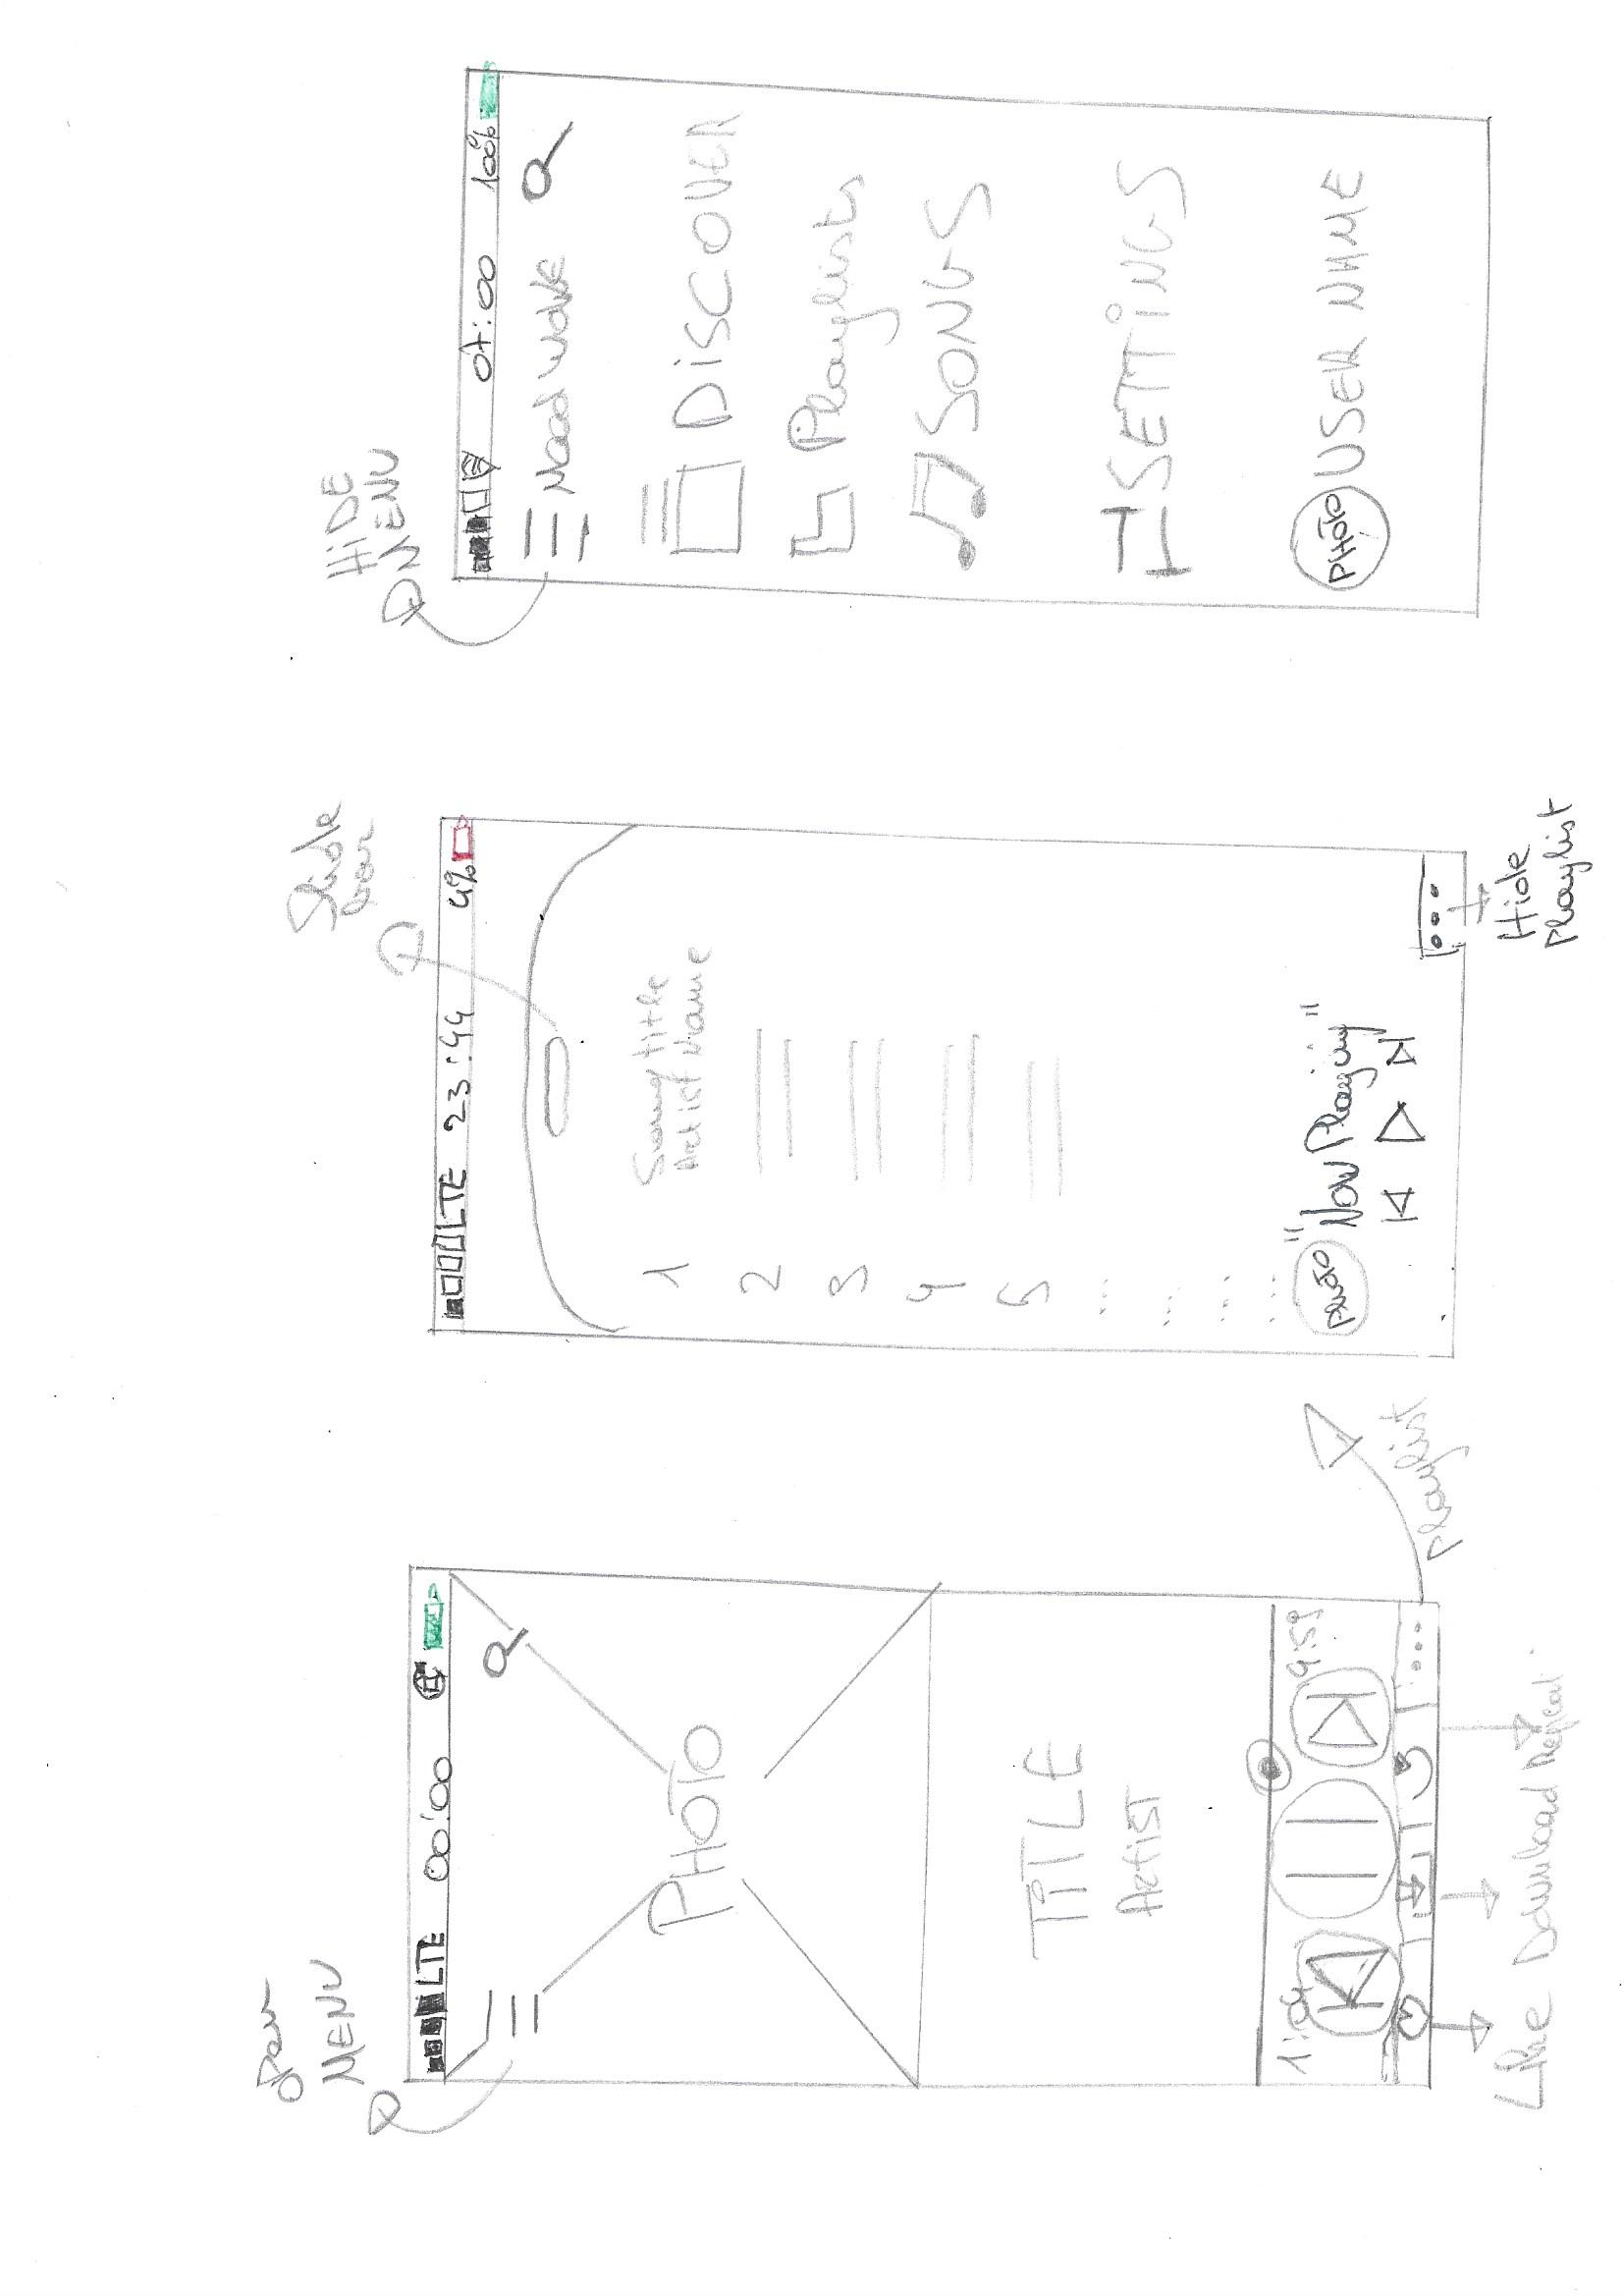 open
MENU
LTE 00:00
PHOTO
TiTLE
Artist
1:04 9:59
Like Download Repeat
Playlist
Slide
bar
LTE 23:44 4%
1 Song title
Artist Name
2
3
4
5
...
...
...
...
PHOTO "Now Playing"
...
Hide
Playlist
HiDE
MENU
07:00 100%
Mood wave
DiSCOVER
Playlists
SONGS
SETTiNGS
PHOTO USER NAME